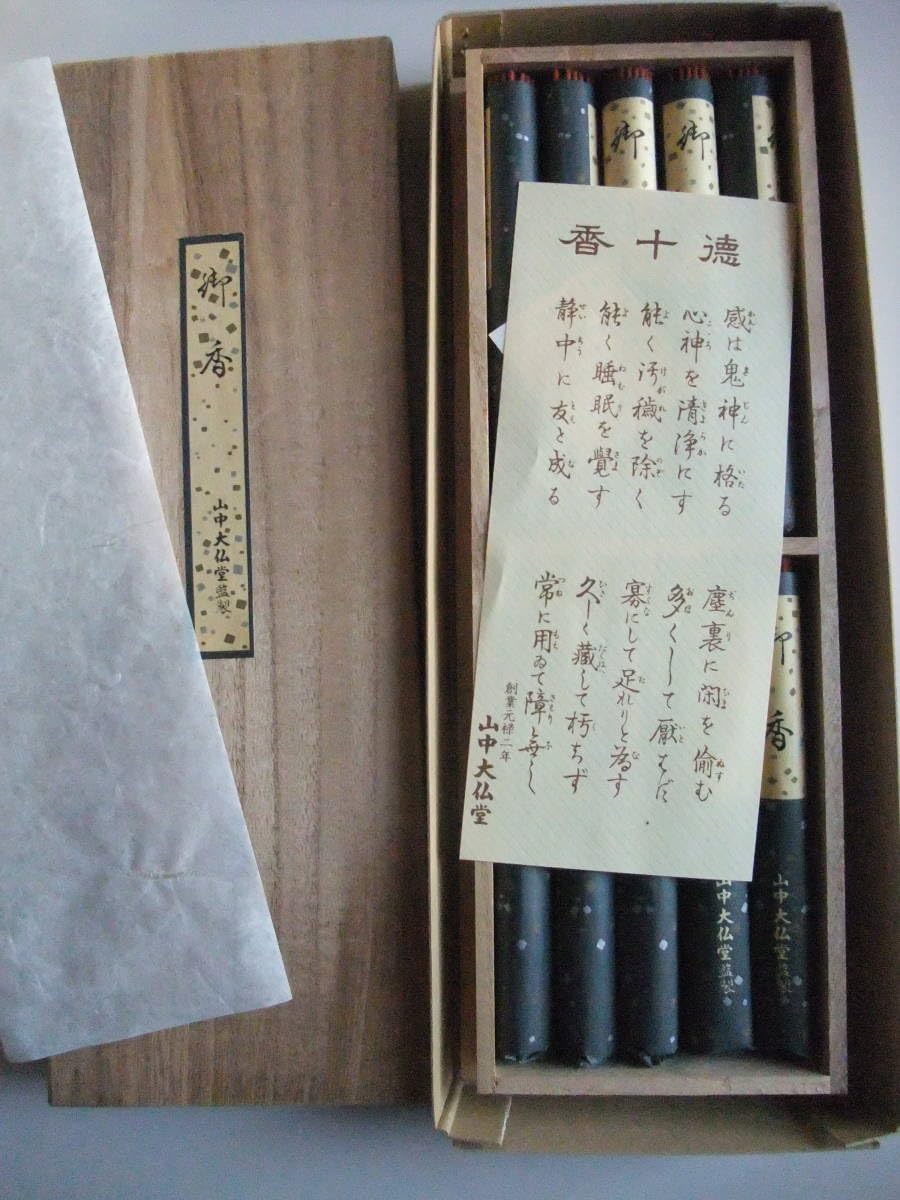 御香
山中大仏堂監製
御
御
香十徳
感は鬼神に格る
心神を清浄にす
能く汚穢を除く
能く睡眠を覺す
静中に友と成る
塵裏に閑を偷む
多くして厭はず
寡にして足れりと為す
久しく藏して朽ちず
常に用ゐて障り無し
創業元禄二年
山中大仏堂
香
山中大仏堂監製
山中大仏堂監製